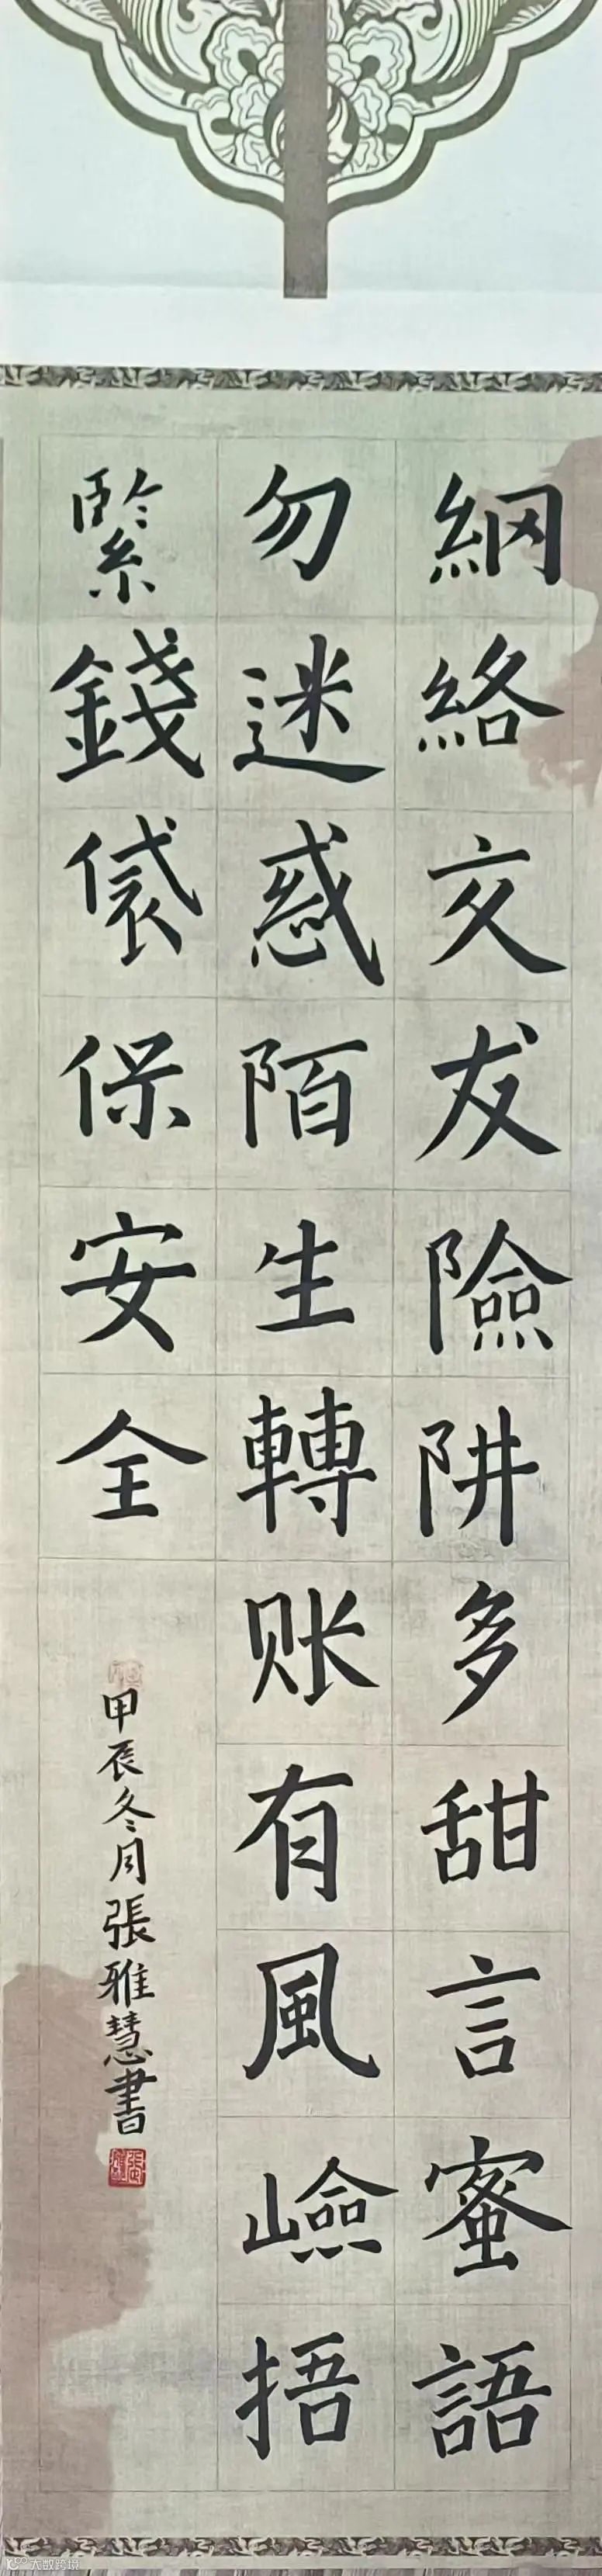 網絡交友險阱多甜言蜜語
勿迷惑陌生轉账有風嶮捂
緊錢袋保安全
甲辰冬月張雅慧書
大數跨境